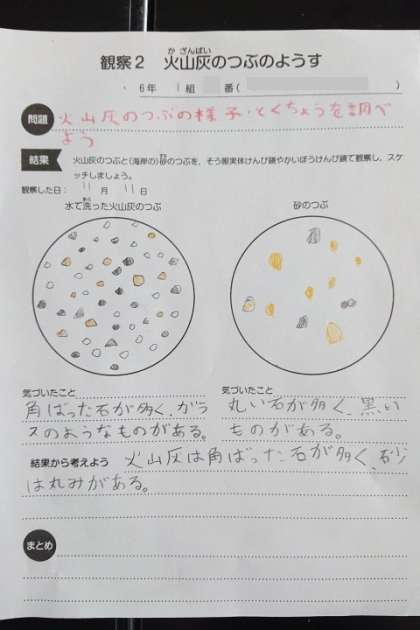 観察2 火山灰のつぶのようす
か ざんばい
6年 1 組 番 ( )
問題 火山灰のつぶの様子・とくちょうを調べ
よう
結果 火山灰のつぶと(海岸の)砂のつぶを、そう眼実体けんび鏡やかいぼうけんび鏡で観察し、スケ
ッチしましょう。
観察した日: 11 月 11 日
水で洗った火山灰のつぶ 砂のつぶ
気づいたこと 気づいたこと
角ばった石が多く、ガラ 丸い石が多く、黒い
スのようなものがある。 ものがある。
結果から考えよう 火山灰は角ばった石が多く、砂
は丸みがある。
まとめ